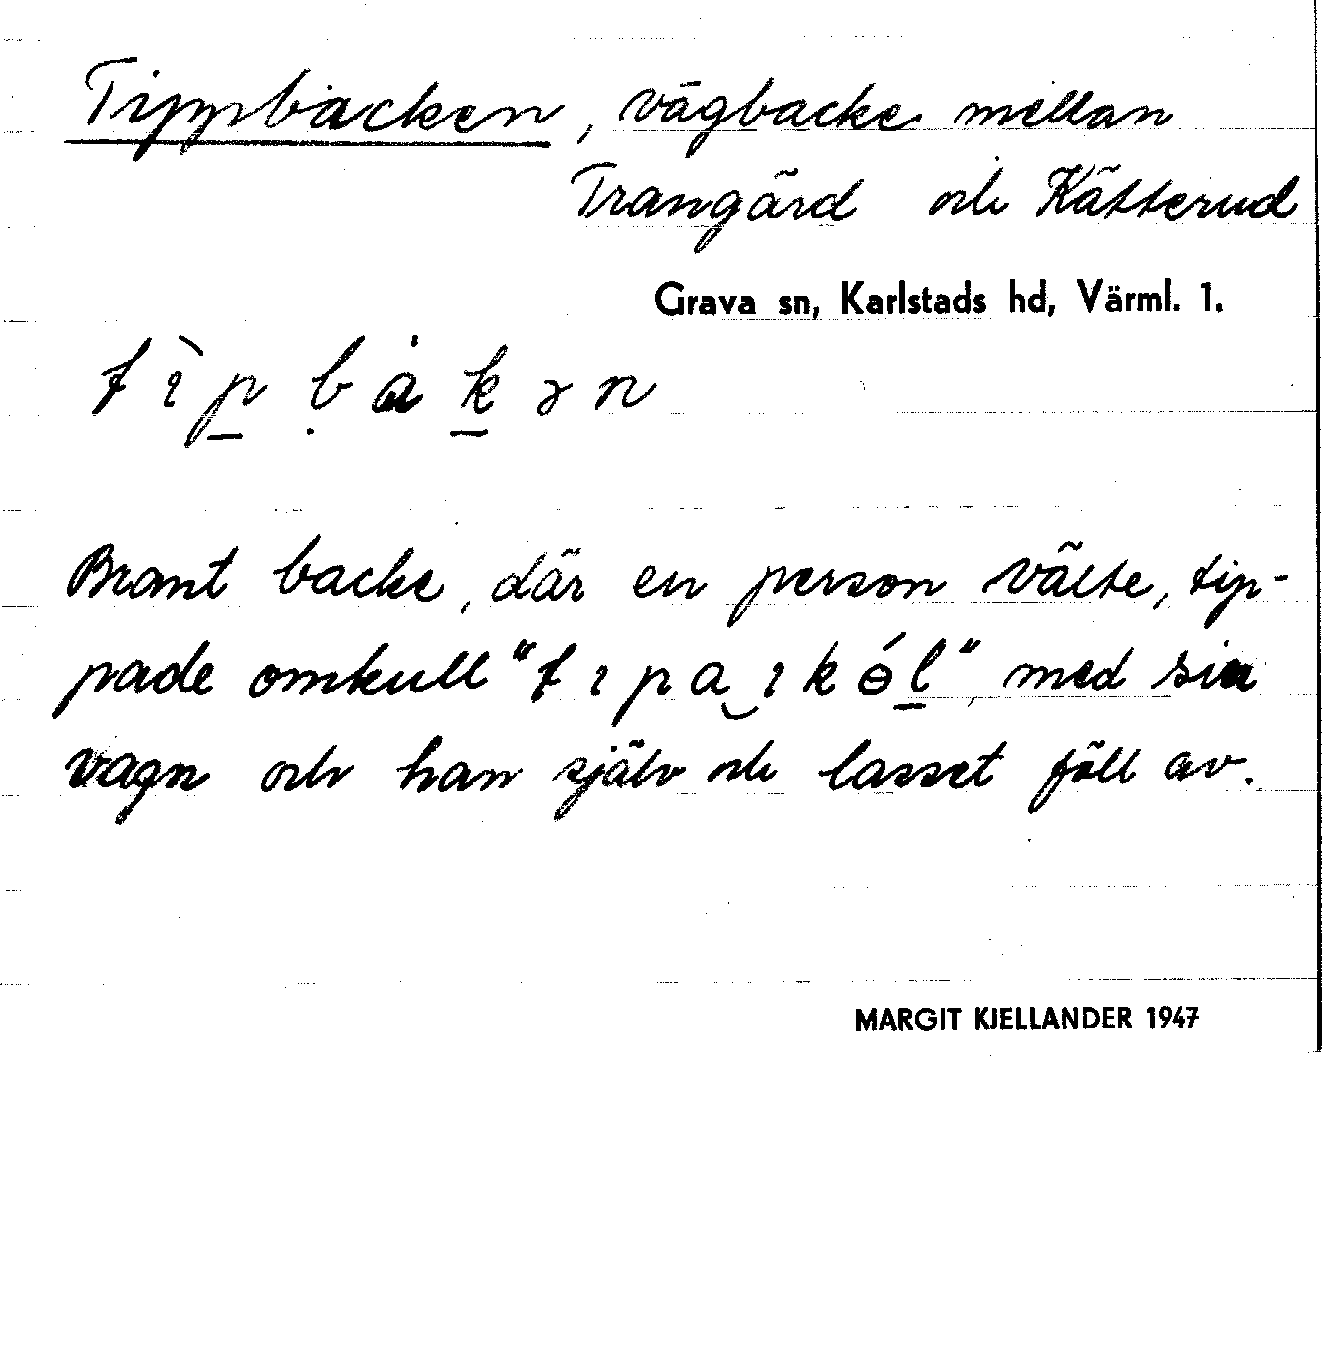 Tippbacken, vägbacke mellan
Trangärd och Kätterud
Grava sn, Karlstads hd, Värml. 1.
tìp̱ ḅȧḵən
Brant backe, där en person välte, tip-
pade omkull "tıpa‿ıkɵ́ḻ" med sin
vagn och han själv och lasset föll av.
MARGIT KJELLANDER 1947